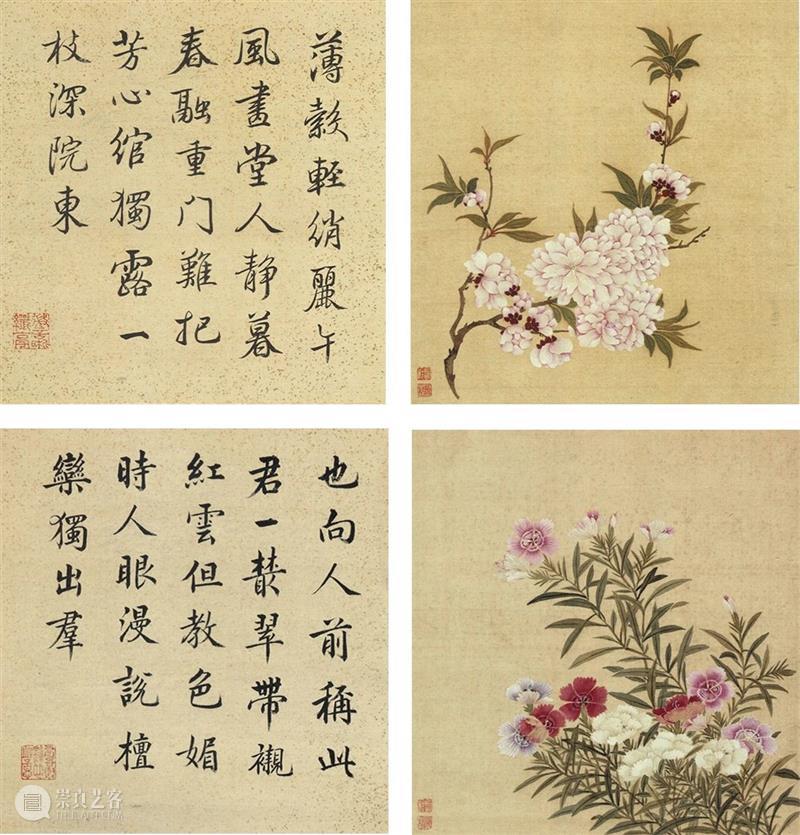 薄縠輕綃麗午
風畫堂人靜暮
春融重门難把
芳心綰獨露一
枝深院東
也向人前稱此
君一叢翠帶襯
紅雲但教色媚
時人眼漫說檀
欒獨出羣
崇真艺客